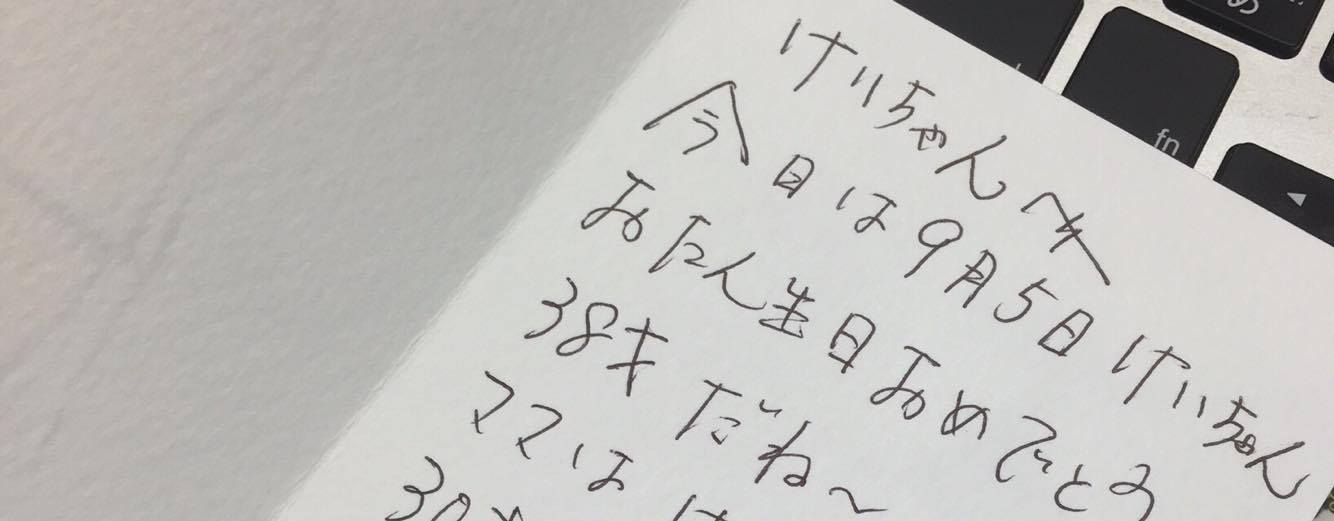 け
fn
◀
けいちゃんへ
今日は9月5日けいちゃん
おたん生日おめでとう
38才だね〜
ママは け
30才